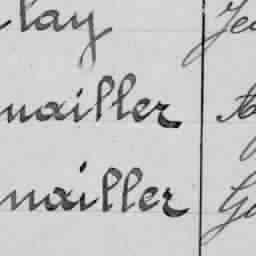 lay Je
mailler A
mailler G